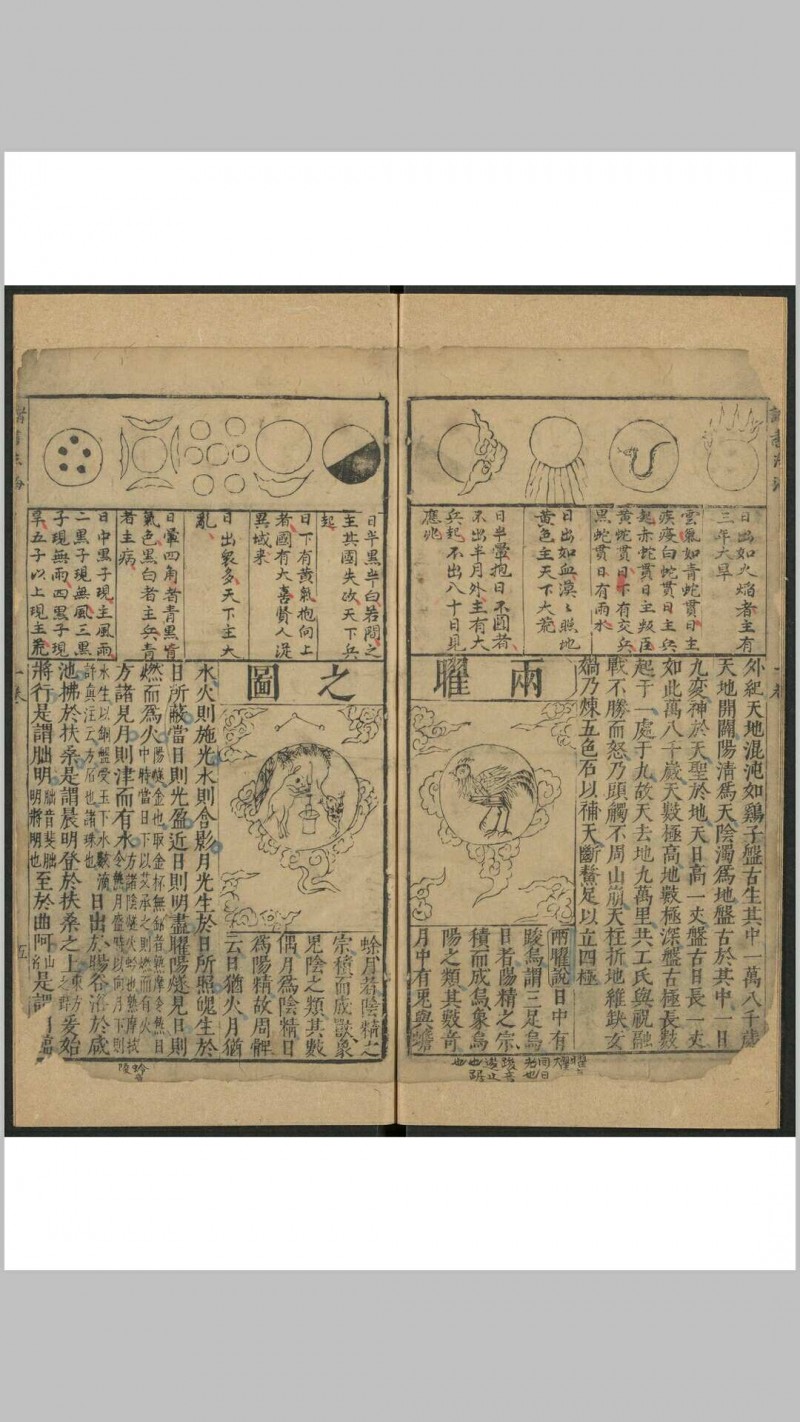 日出如火焰者主有
三年大旱
雲氣如青蛇貫日主
疾疫白蛇貫日主兵
起赤蛇貫日主叛臣
黄蛇貫日下有交兵
黑蛇貫日有雨水
日出如血漠々照地
黄色主天下大荒
日半暈抱日不圓者
不出半月外主有大
兵起不出八十日見
應兆
外紀天地混沌如鷄子盤古生其中一萬八千歲
天地開闢陽清爲天陰濁爲地盤古於其中一日
九変神於天聖於地天日高一丈盤古日長一丈
如此萬八千歲天數極高地數極深盤古極長數
起于一處于九故天去地九萬里共工氏與祝融
戰不勝而怒乃頭觸不周山崩天柱折地維缺女
媧乃煉五色石以補天斷鰲足以立四極
兩曜
兩曜說日中有
踆烏謂三足烏
日者陽精之宗
積而成烏象烏
陽之類其數奇
月中有兎與蟾
日半黑半白若閉之
主其國失政天下兵
起
日下有黄氣抱向上
者國有大喜賢人從
異域来
日出衆多天下主大
亂
日暈四角者青黑背
氣色黑白者主兵青
者主病
日中黑子現主風雨
二黑子現無風三黑
子現無雨四黑子現
旱五子以上現主荒
之圖
蜍月者陰精之
宗積而成獸象
兎陰之類其數
偶月爲陰精日
爲陽精故周髀
云日猶火月猶
水火則施光水則含影月光生於日所照魄生於
日所蔽當日則光盈近日則明盡曜陽燧見日則
燃而爲火陽燧金也取金杯無緣者熟摩令熱日中時當日下以艾承之則燃而有火
方諸見月則津而有水方諸陰燧火蛤也熟摩拭令熱月盛時以向月下則
水生以銅盤受玉下水數滴許眞注云方石也諸珠也日出於暘谷浴於咸
池拂於扶桑是謂晨明登於扶桑之上東方之野爰始
將行是謂朏明朏音斐朏明將明也至於曲阿山谷是謂